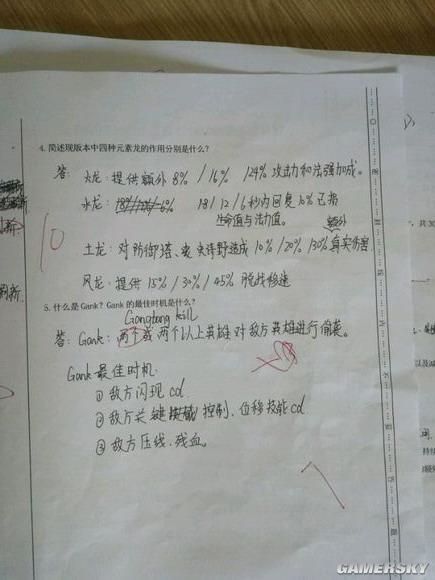 4. 简述现版本中四种元素龙的作用分别是什么?
答: 火龙: 提供额外 8% / 16% / 24% 攻击力和法强加成。
水龙: 18 / 12 / 6 秒内回复 10% 已损
生命值与法力值。
额外
土龙: 对防御塔、史诗野怪造成 10% / 20% / 30% 真实伤害
风龙: 提供 15% / 30% / 45% 脱战移速
10
5. 什么是Gank? Gank 的最佳时机是什么?
Gangbang kill
答: Gank: 两个或两个以上英雄对敌方英雄进行偷袭。
Gank 最佳时机
① 敌方闪现 cd
② 敌方关键 控制、位移技能 cd
③ 敌方压线、残血。
7
GAMERSKY